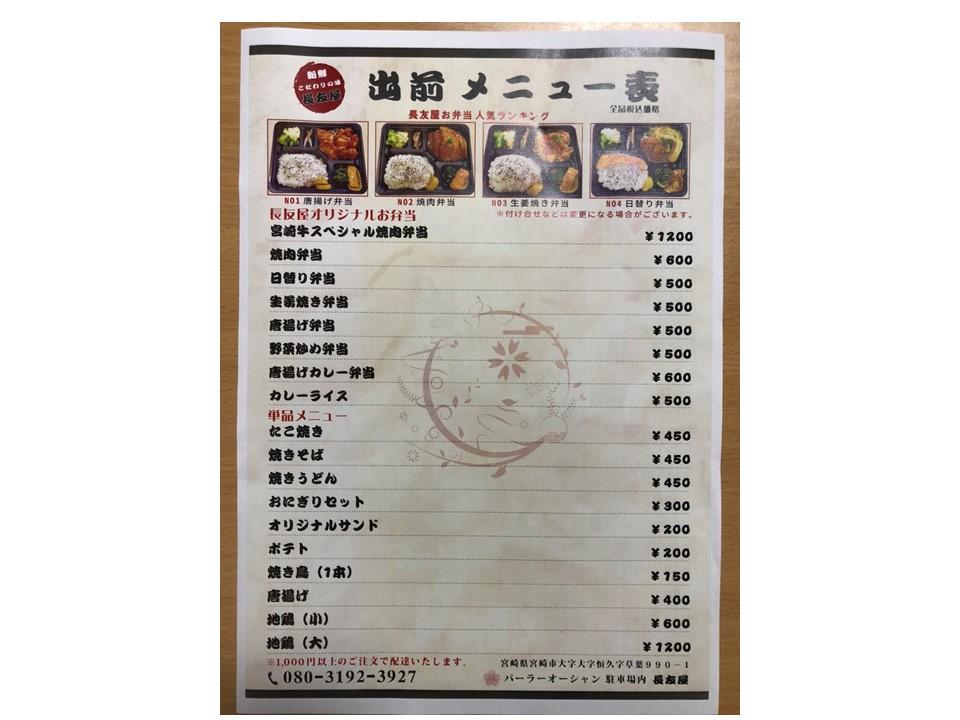 鮎鮮
こだわりの味
長友屋
出前 メニュー表
全品税込価格
長友屋お弁当 人気ランキング
NO1 唐揚げ弁当 NO2 焼肉弁当 NO3 生姜焼き弁当 NO4 日替り弁当
長友屋オリジナルお弁当 ※付け合せなどは変更になる場合がございます。
宮崎牛スペシャル焼肉弁当 ¥1200
焼肉弁当 ¥600
日替り弁当 ¥500
生姜焼き弁当 ¥500
唐揚げ弁当 ¥500
野菜炒め弁当 ¥500
唐揚げカレー弁当 ¥600
カレーライス ¥500
単品メニュー
たこ焼き ¥450
焼きそば ¥450
焼きうどん ¥450
おにぎりセット ¥300
オリジナルサンド ¥200
ポテト ¥200
焼き鳥（1本） ¥150
唐揚げ ¥400
地鶏（小） ¥600
地鶏（大） ¥1200
※1,000円以上のご注文で配達いたします。 宮崎県宮崎市大字大字恒久字草葉９９０－１
080-3192-3927 パーラーオーシャン 駐車場内 長友屋